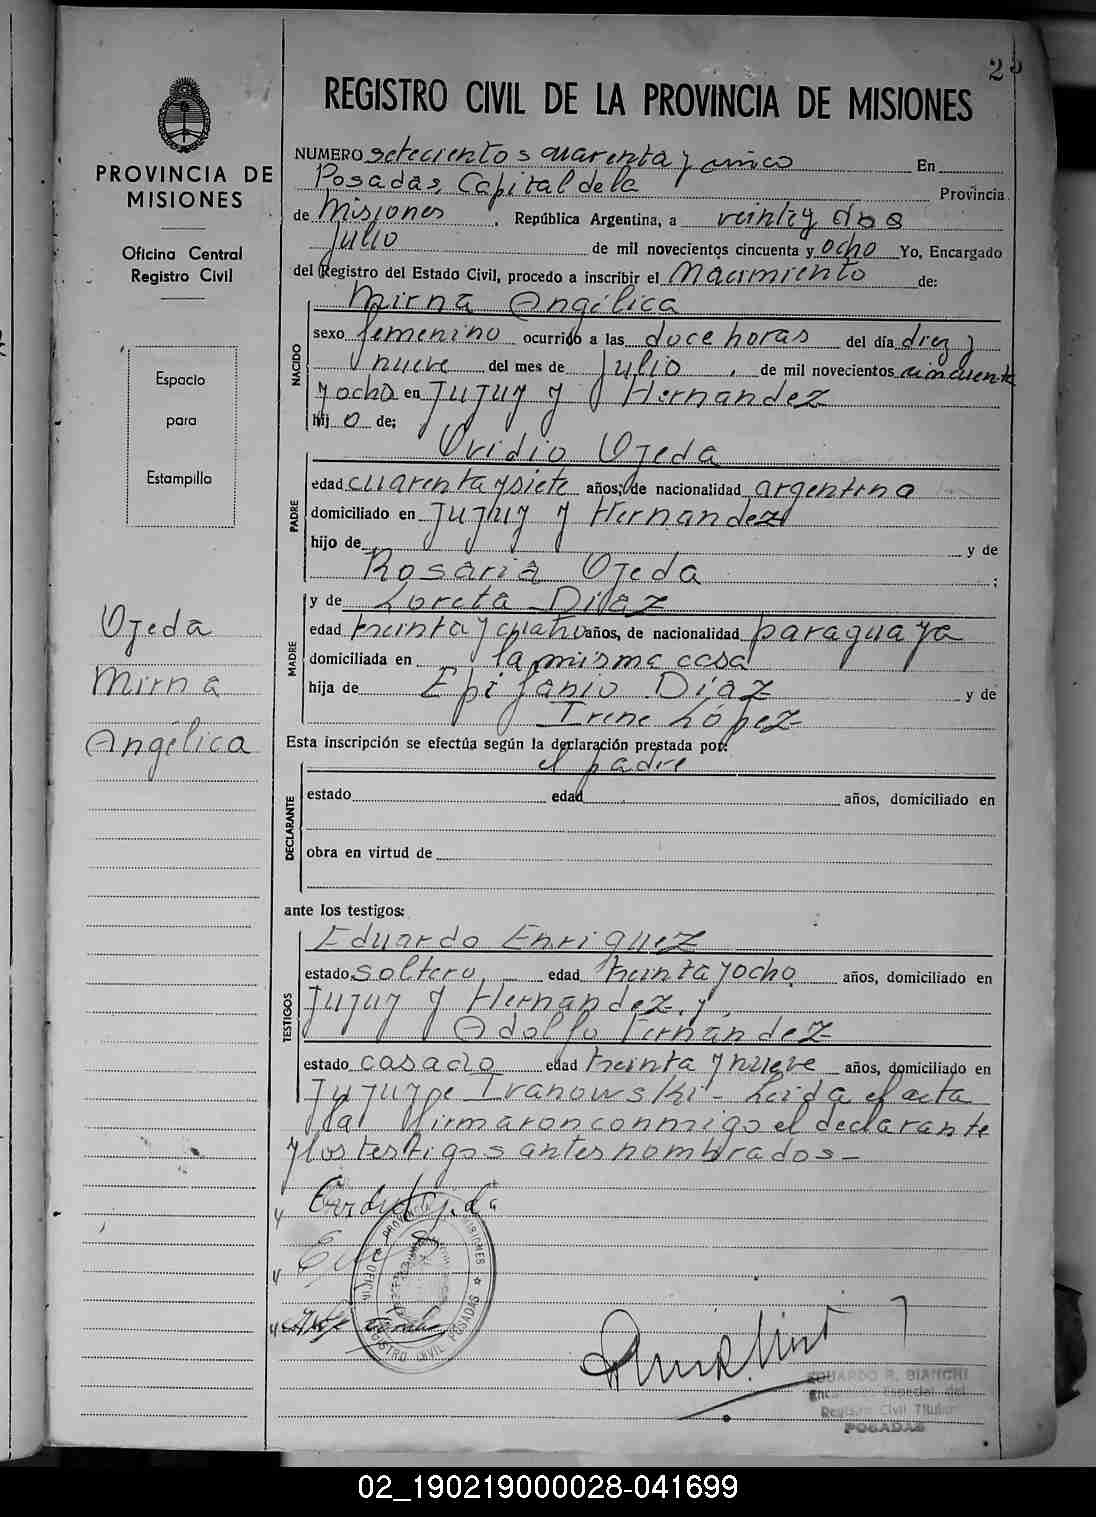 25
REGISTRO CIVIL DE LA PROVINCIA DE MISIONES
PROVINCIA DE
MISIONES
Oficina Central
Registro Civil
Espacio
para
Estampilla
Ojeda
Mirna
Angélica
NUMERO setecientos cuarenta y cinco En
Posadas, Capital de la Provincia
de Misiones, República Argentina, a veintey dos
Julio de mil novecientos cincuenta y ocho Yo, Encargado
del Registro del Estado Civil, procedo a inscribir el Nacimiento de:
Mirna Angélica
NACIDO
sexo femenino ocurrido a las doce horas del día diez y
nueve del mes de Julio, de mil novecientos cincuenta
y ocho en Jujuy y Hernandez
hij o de;
Ovidio Ojeda
PADRE
edad cuarenta y siete años, de nacionalidad argentino
domiciliado en Jujuy y Hernandez
hijo de y de
Rosaria Ojeda ;
y de Loreta Díaz
MADRE
edad treinta y cuatro años, de nacionalidad paraguaya
domiciliada en la misma casa
hija de Epifanio Díaz y de
Irene López
Esta inscripción se efectúa según la declaración prestada por:
el padre
DECLARANTE
estado edad años, domiciliado en
obra en virtud de
ante los testigos:
Eduardo Enriquez
TESTIGOS
estado soltero edad treinta y ocho años, domiciliado en
Jujuy y Hernandez y
Adolfo Fernández
estado casado edad treinta y nueve años, domiciliado en
Jujuy e Ivanowski - Leida el acta
la firmaron conmigo el declarante
y los testigos antes nombrados-
PROVINCIA MISIONES
OFICINA REGISTRO CIVIL POSADAS
EDUARDO R. BIANCHI
Encargado Especial del
Registro Civil Titular
POSADAS
02_190219000028-041699